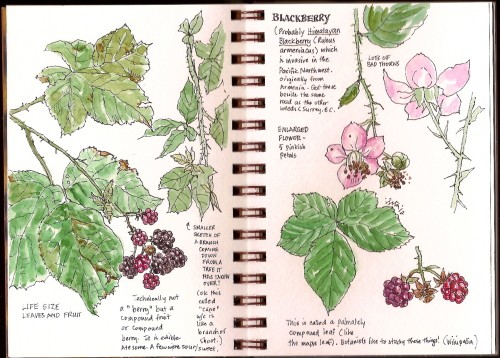 LIFE SIZE
LEAVES AND FRUIT
Technically not
a "berry" but a
compound fruit
or compound
berry. It is edible.
Ate some. A few were sour/sweet.
SMALLER
SKETCH OF
A BRANCH
COMING
DOWN
FROM A
TREE IT
HAS GROWN
OVER!
(OK this
called
"cane"
w/c is
like a
branch or
shoot.)
BLACKBERRY
(Probably Himalayan
Blackberry (Rubus
armeniacus) which
is invasive in the
Pacific Northwest.
originally from
Armenia - Got these
beside the same
road as the other
weeds (Surrey, B.C.
LOTS OF
BAD THORNS
ENLARGED
FLOWER -
5 pinkish
petals
This is called a palmately
compound leaf (like
the maple leaf). Botanists like to study these things! (Wikipedia)